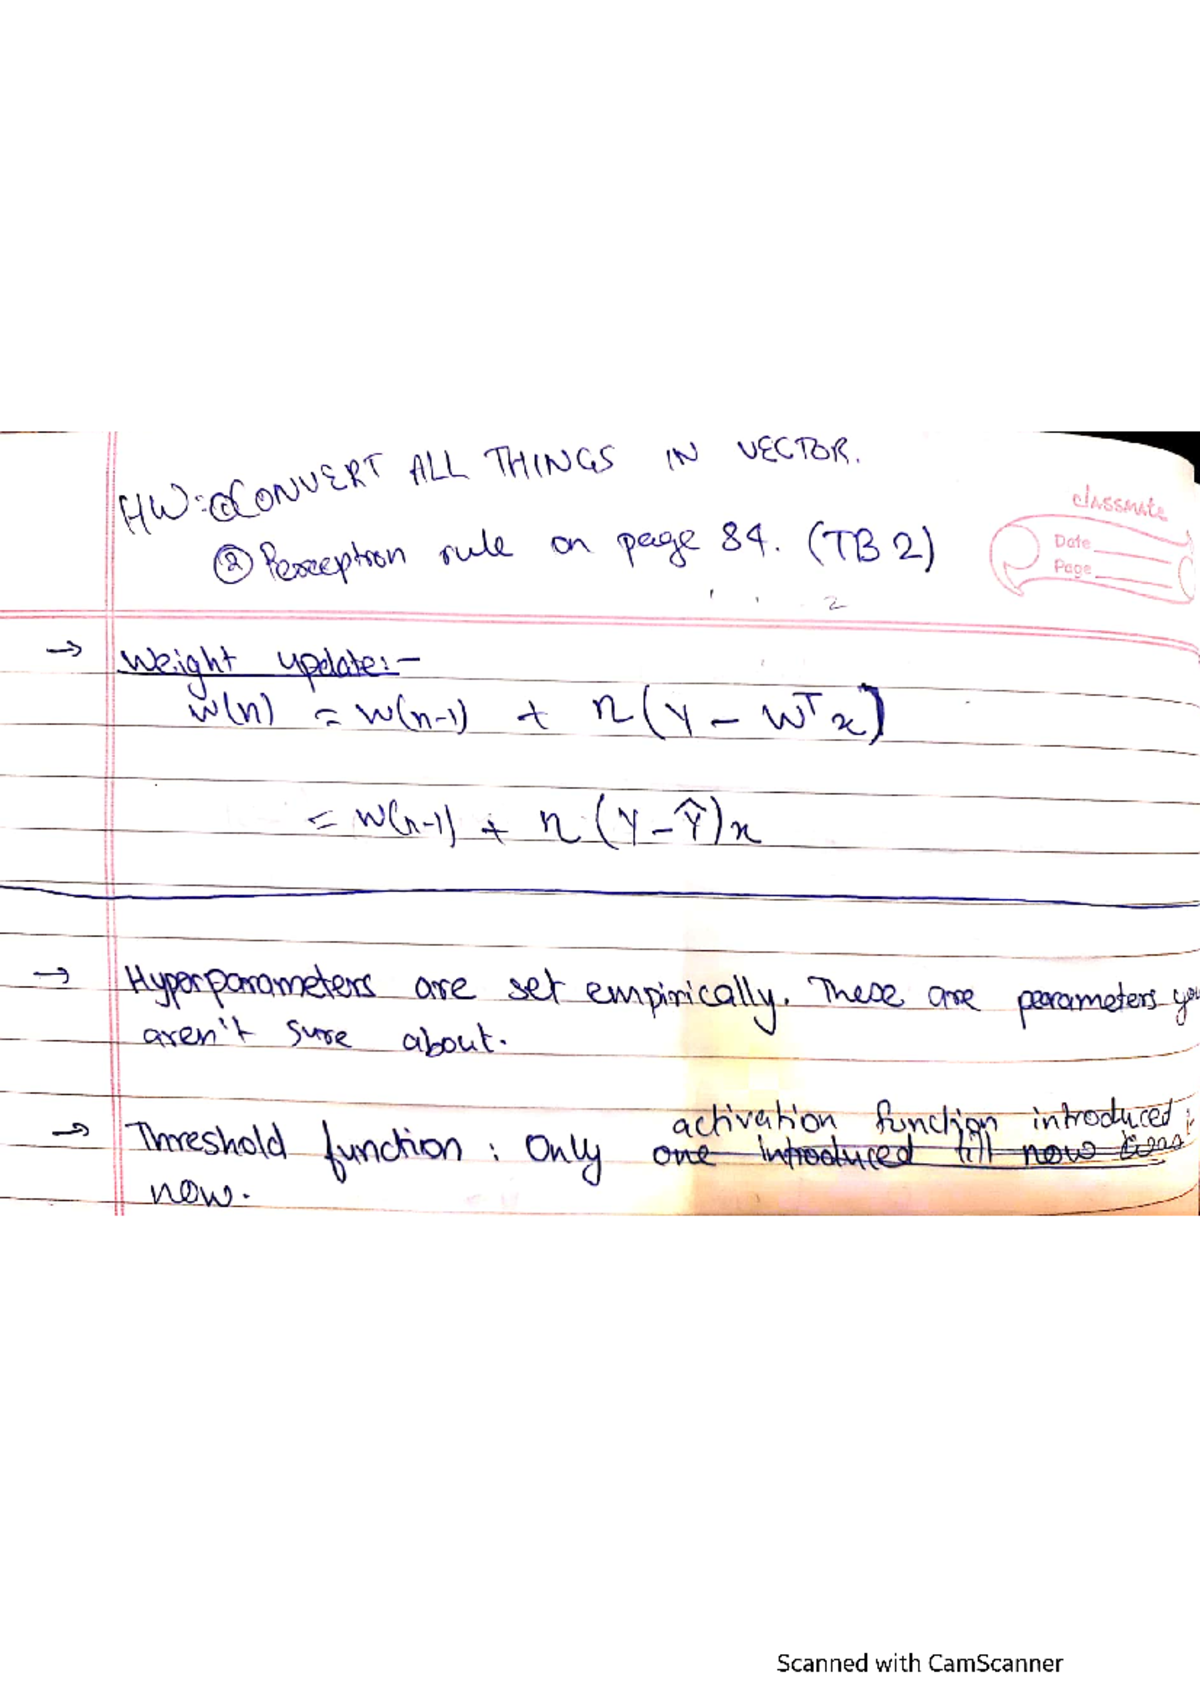 HW:① CONVERT ALL THINGS IN VECTOR.
② Perceptron rule on page 84. (TB 2)
classmate
Date
Page
2
→ Weight update:-
w(n) = w(n-1) + η(Y - WᵀX)
= w(n-1) + η (Y - Ŷ)x
→ Hyperparameters are set empirically. These are parameters you
aren't sure about.
activation function introduced
→ Threshold function : Only one introduced till now
now.
Scanned with CamScanner